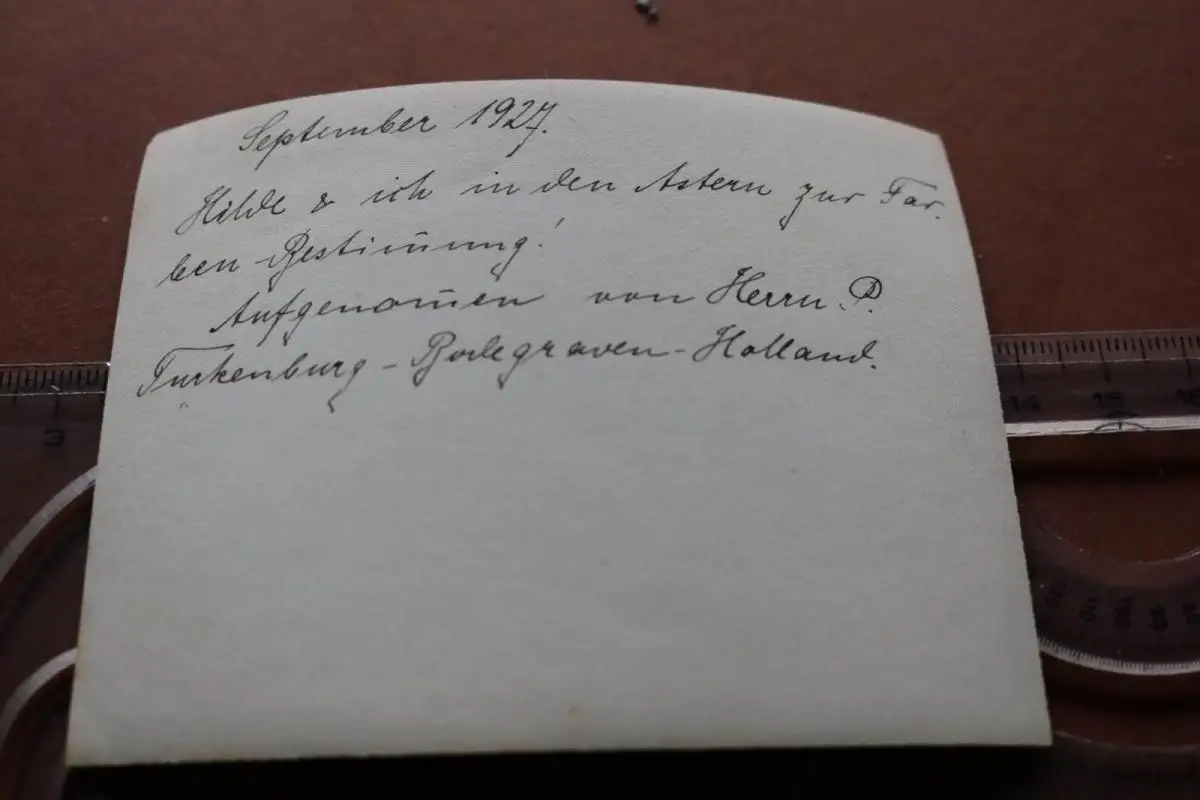 September 1927.
Hilde & ich in den Astern zur Far-
ben-Bestim̅ung!
Aufgenom̅en von Herrn P.
Turkenburg - Bodegraven - Holland.
3
14 15